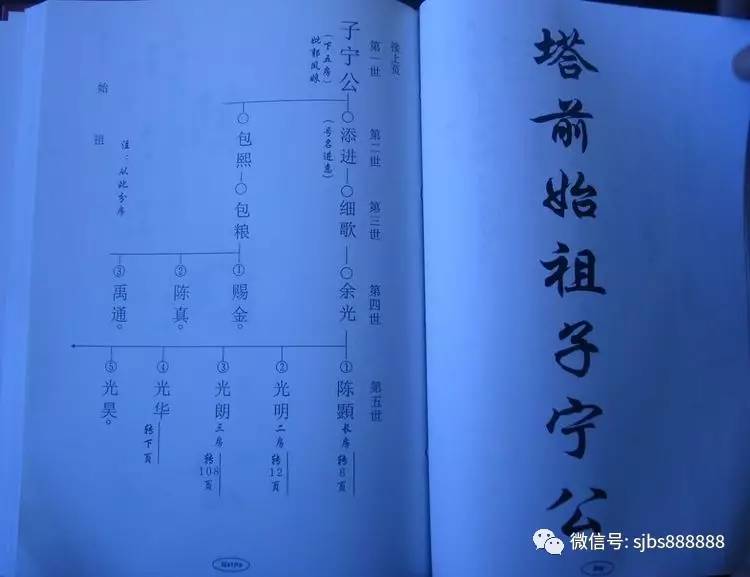 塔前始祖子宁公
接上页
第一世
子宁公
(下五房)
妣郭凤娘
第二世
添进
(号名进惠)
包熙
第三世
细歌
包粮
第四世
余光
①赐金。
②陈真。
③禹通。
第五世
①陈顕 长房 转8页
②光明 二房 转12页
③光朗 三房 转108页
④光华 转下页
⑤光昊。
始祖
注：从此分房
微信号: sjbs888888